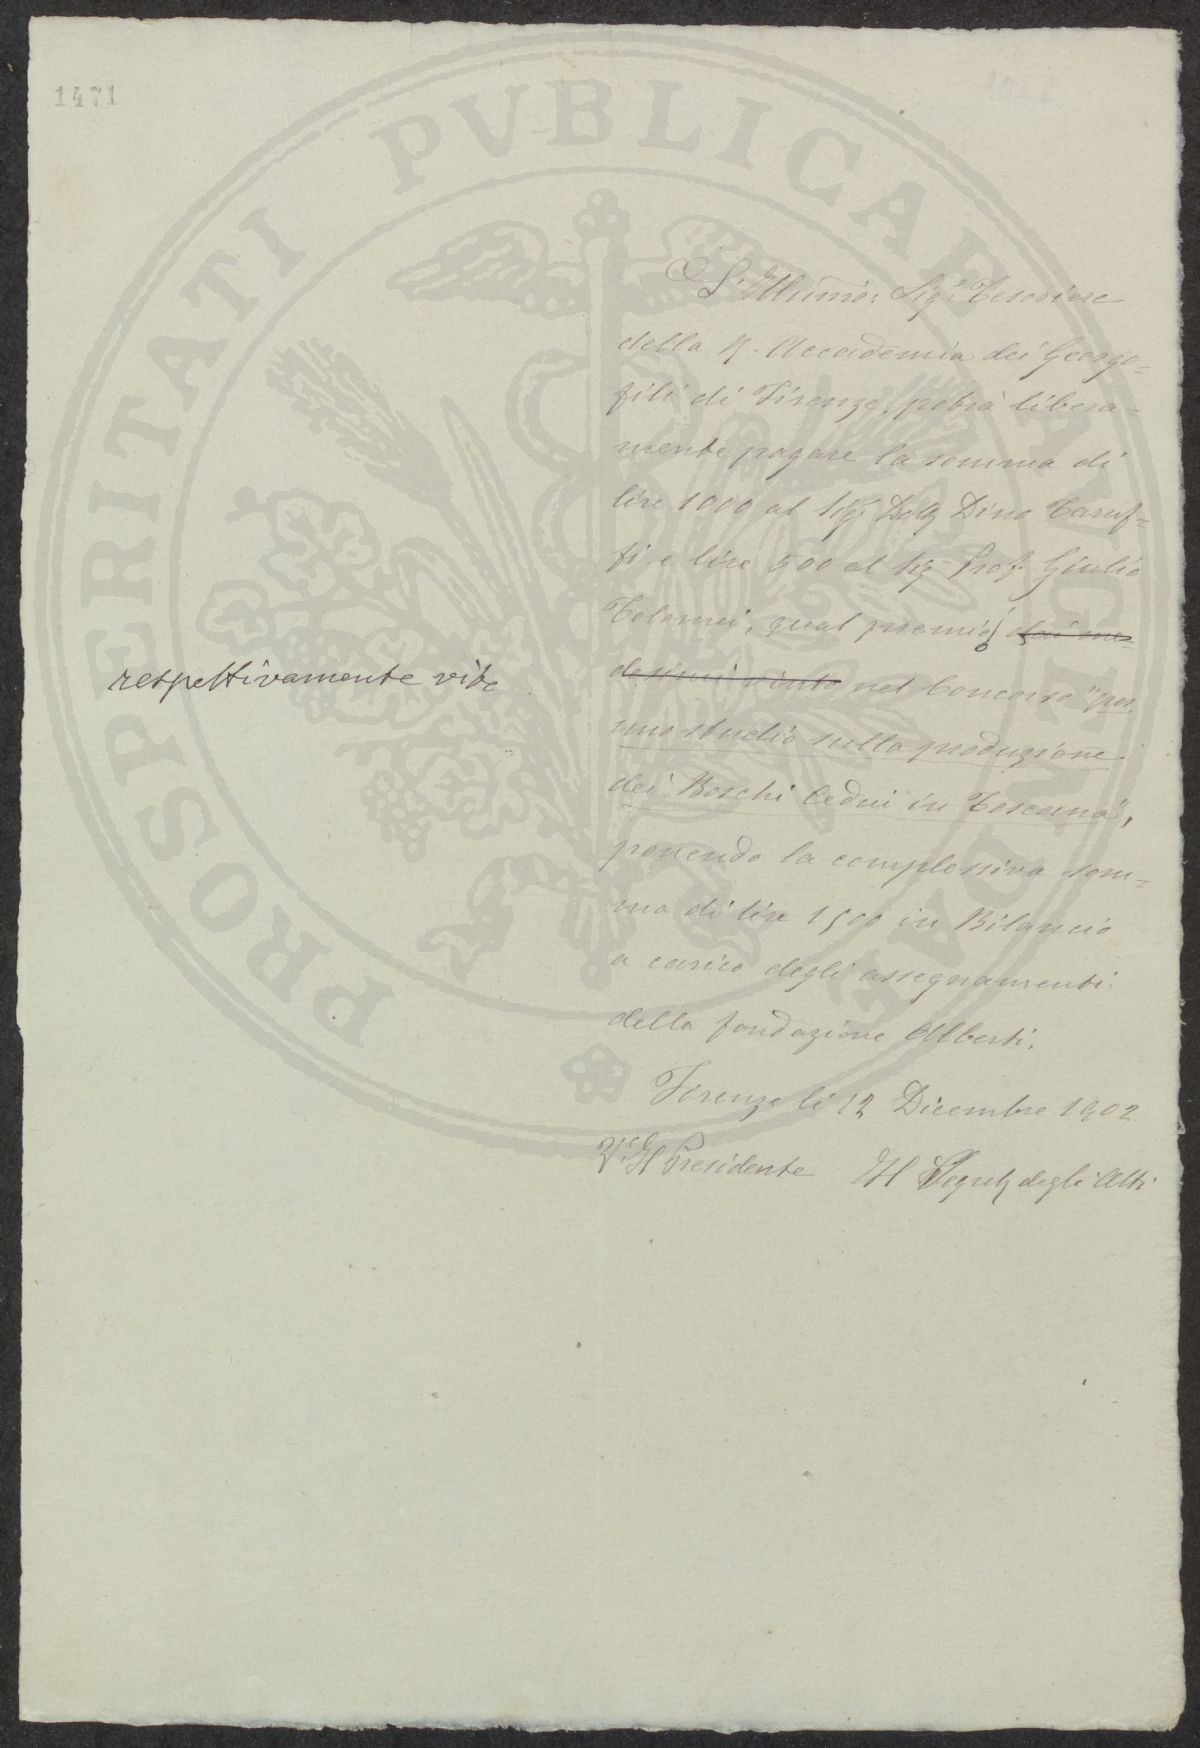 1471
PROSPERITATI PVBLICAE AVGENDAE
L'Illumio: Sigr Tesoriere
della R. Accademia dei Georgo=
fili di Firenze, potrà libera-
mente pagare la somma di
lire 1000 al Sigr Dott Dino Taruf=
fi e lire 500 al Sig Prof. Giulio
Tolomei, qual premio dai me-
respettivamente
desimi vinto nel Concorso "per
uno studio sulla produzione
dei Boschi Cedui in Toscana",
ponendo la complessiva som=
ma di lire 1500 in Bilancio
a carico degli assegnamenti
della fondazione Alberti.
Firenze li 12 Dicembre 1902
Il Presidente Il Segret degli Atti